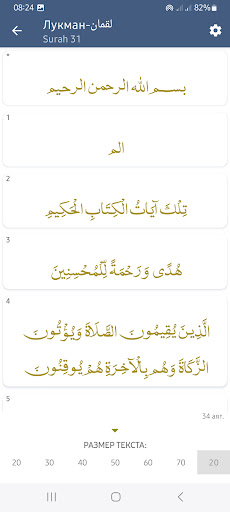 08:24 82%
Лукман-لقمان
Surah 31
*
بسم الله الرحمن الرحيم
1
الم
2
تِلْكَ آيَاتُ الْكِتَابِ الْحَكِيمِ
3
هُدًى وَرَحْمَةً لِّلْمُحْسِنِينَ
4
الَّذِينَ يُقِيمُونَ الصَّلَاةَ وَيُؤْتُونَ
الزَّكَاةَ وَهُم بِالْآخِرَةِ هُمْ يُوقِنُونَ
5
34 аят.
РАЗМЕР ТЕКСТА:
20 30 50 60 70 20